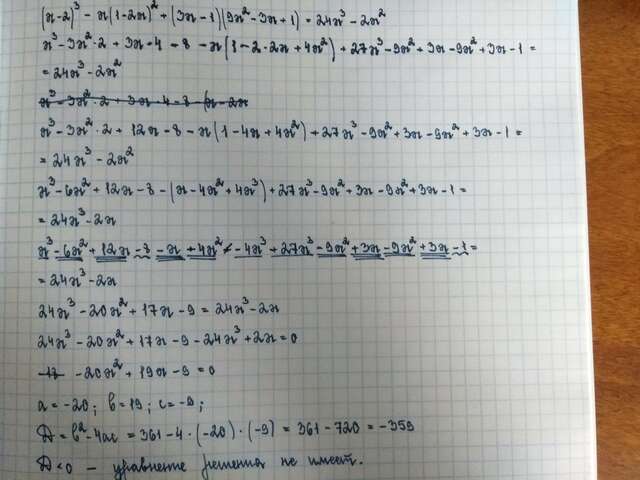 (x-2)³ - x(1-2x)² + (3x-1)(9x²-3x+1) = 24x³ - 2x²
x³ - 3x²·2 + 3x·4 - 8 - x(1-2·2x+4x²) + 27x³ - 9x² + 3x - 9x² + 3x - 1 =
= 24x³ - 2x²
x³ - 3x²·2 + 3x·4 - 8 (x - 2x
x³ - 3x²·2 + 12x - 8 - x(1-4x+4x²) + 27x³ - 9x² + 3x - 9x² + 3x - 1 =
= 24x³ - 2x²
x³ - 6x² + 12x - 8 - (x - 4x² + 4x³) + 27x³ - 9x² + 3x - 9x² + 3x - 1 =
= 24x³ - 2x
x³ - 6x² + 12x - 8 - x + 4x² - 4x³ + 27x³ - 9x² + 3x - 9x² + 3x - 1 =
= 24x³ - 2x
24x³ - 20x² + 17x - 9 = 24x³ - 2x
24x³ - 20x² + 17x - 9 - 24x³ + 2x = 0
-20x² + 19x - 9 = 0
a = -20; b = 19; c = -9;
D = b² - 4ac = 361 - 4·(-20)·(-9) = 361 - 720 = -359
D < 0 - уравнение решения не имеет.